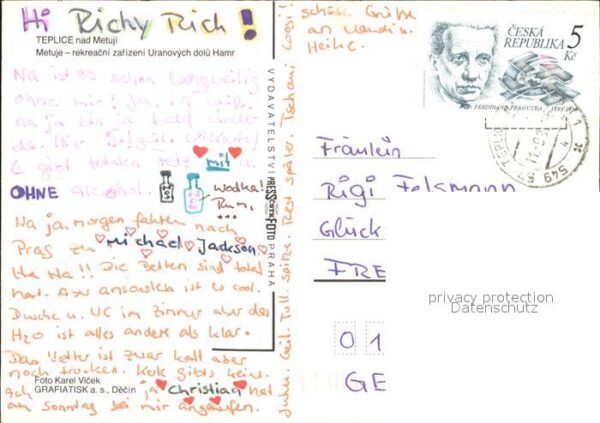 Hi Richy Rich!
TEPLICE nad Metují
Metuje – rekreační zařízení Uranových dolů Hamr
Na ist es schon langweilig
ohne mir? Ja, ich weiß.
na ja bin ja bald wieder
da.
Es gibt totalen mit u.
OHNE Alcohol.
Wodka!
Rum,
...
Na ja. morgen fahren nach
Prag zu Michael Jackson.
Ha Ha!! Die Betten sind total
hart. Aber ansonsten ist es cool.
Dusche u. WC im Zimmer aber das
H2O ist alles andere als klar.
Das Wetter ist zwar kalt aber
noch trocken. Kerle gibts keine.
Ach ja Christian hat
am Sonntag bei mir angerufen.
Foto Karel Vlček
GRAFIATISK a. s., Děčín
VYDAVATELSTVÍ PRESSFOTO PRAHA
Geil. Toll. spitze. Rest später. Tschaui
schöne Grüße
an
Heike.
ČESKÁ
REPUBLIKA
5
Kč
FERDINAND PEROUTKA
549 57
Fräulein
Rigi Felsmann
Glück
FRE
privacy protection
Datenschutz
01
GE